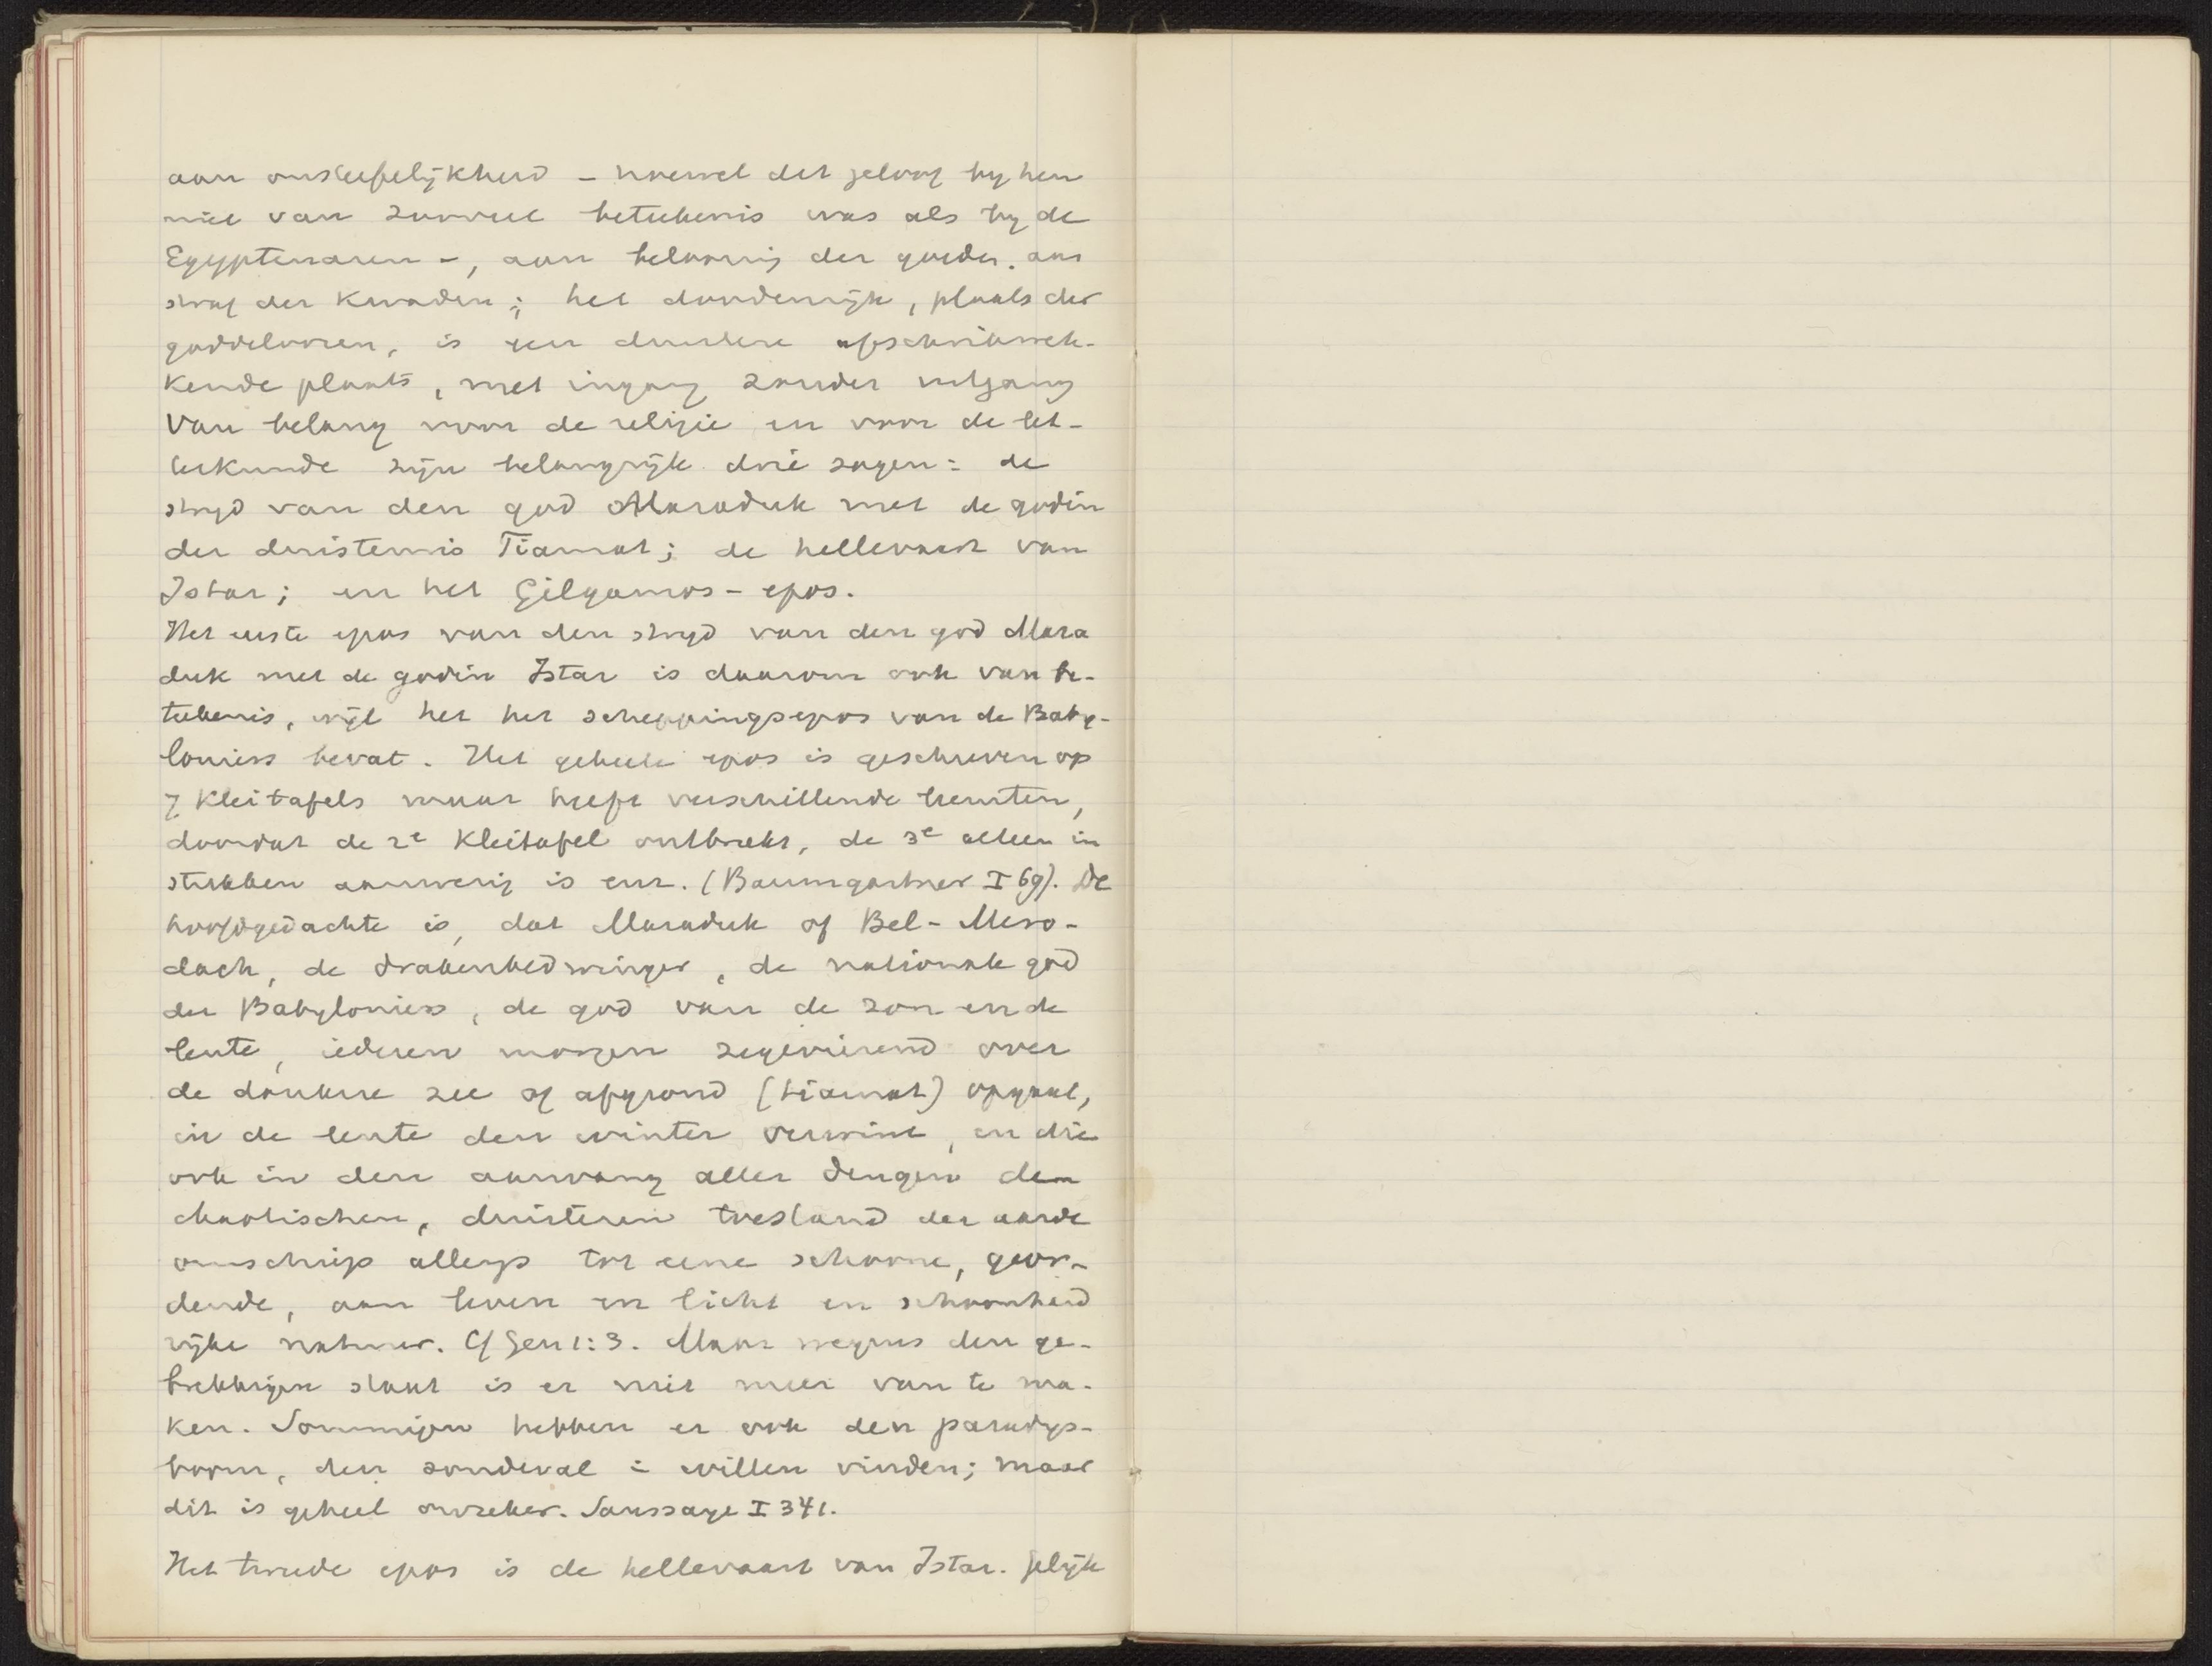 aan onsterfelijkheid – hoewel dit geloof by hen
niet van zooveel beteekenis was als by de
Egyptenaren –, aan belooning der goeden, aan
straf der kwaden; het doodenrijk, plaats der
goddeloozen, is een donkere afschrikwek-
kende plaats, met ingang zonder uitgang
Van belang voor de religie en voor de let-
terkunde zijn belangrijk drie sagen: de
stryd van den god Maraduk met de godin
der duisternis Tiamat; de hellevaart van
Istar; en het Gilgamos-epos.
Het eerste epos van den stryd van den god Mara
duk met de godin Istar is daarom ook van be-
teekenis, wijl het het scheppingsepos van de Baby-
loniers bevat. Het geheele epos is geschreven op
7 kleitafels maar heeft verschillende leemten,
doordat de 2e kleitafel ontbreekt, de 3e alleen in
stukken aanwezig is enz. (Baumgartner I 69). De
hoofdgedachte is, dat Maraduk of Bel-Mero-
dach, de drakenbedwinger, de nationale god
der Babyloniers, de god van de zon en de
lente, iederen morgen zegevierend over
de donkere zee of afgrond (tiamat) opgaat,
in de lente den winter verwint, en die
ook in den aanvang aller dingen den
chaotischen, duisteren toestand der aarde
omschiep allengs tot eene schoone, geor-
dende, aan leven en licht en schoonheid
rijke natuur. Cf Gen 1:3. Maar wegens den ge-
brekkigen staat is er niet meer van te ma-
ken. Sommigen hebben er ook den paradys-
boom, den zondeval in willen vinden; maar
dit is geheel onzeker. Saussaye I 341.
Het tweede epos is de hellevaart van Istar. Gelijk